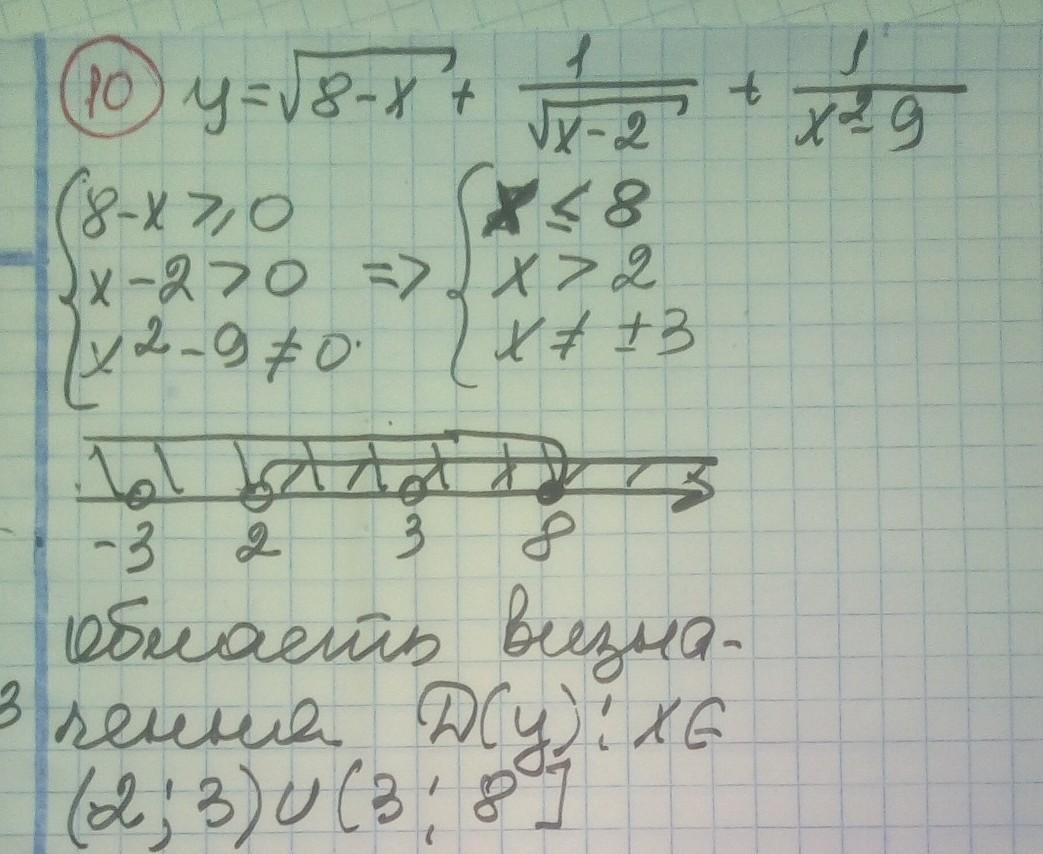 10 y = √(8-x) + 1/√(x-2) + 1/(x²-9)
{ 8-x ≥ 0 { x ≤ 8
{ x-2 > 0 => { x > 2
{ x²-9 ≠ 0 { x ≠ ±3
-3 2 3 8
область визна-
чення D(y): x∈
(2; 3)∪(3; 8]